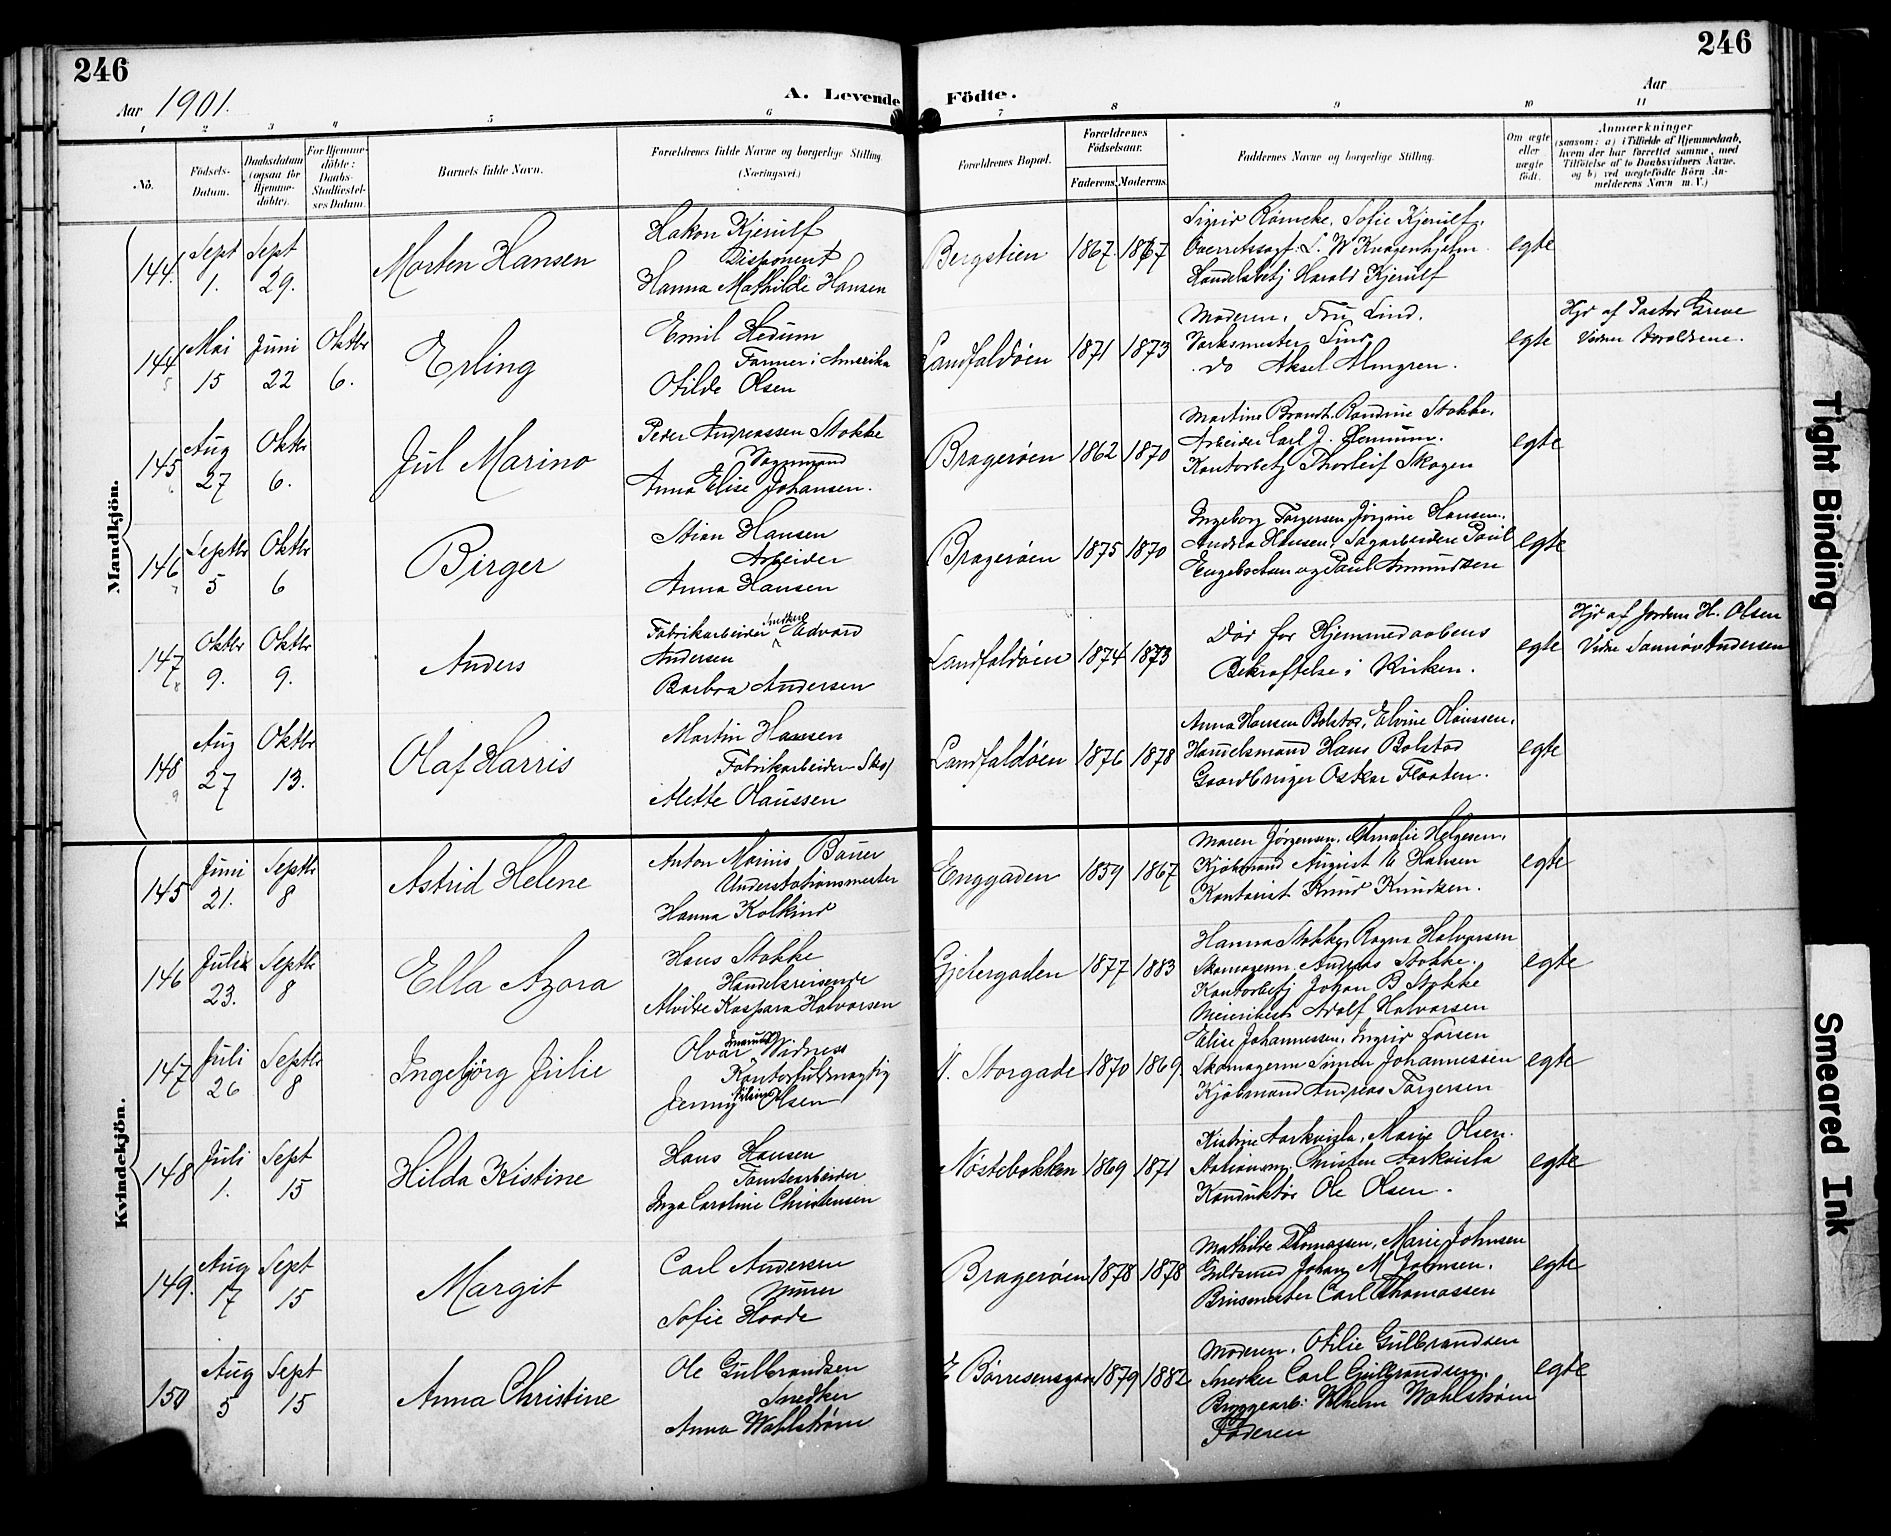 246
246
Aar 1901.
A. Levende
Födte.
Aar
1 2 3 4 5 6 7 8 9 10 11
No.
Födsels-
Datum.
Daabsdatum
(ogsaa for
Hjemme-
döbte).
For Hjemme-
döbte:
Daabs-
Stadfæstel-
ses Datum.
Barnets fulde Navn.
Forældrenes fulde Navne og borgerlige Stilling
(Næringsvei.)
Forældrenes Bopæl.
Forældrenes
Födselsaar.
Faderens.
Moderens.
Faddernes Navne og borgerlige Stilling.
Om ægte
eller
uægte
födt.
Anmærkninger
(saasom: a) i Tilfælde af Hjemmedaab,
hvem der har forrettet samme, med
Tilföielse af to Daabsvidners Navne.
og b) ved uægtefödte Börn An-
melderens Navn m. V.)
Mandkjön.
144. Sept 1. Sept 29. Morten Hansen
Hakon Kjerulf
Disponent
Hanna Mathilde Hansen
Bergstien 1867. 1867
Sigrid Römcke, Sofie Kjerulf,
Overretssagf. L. W Knagenhjelm
Handelsbetj Harald Kjerulf
egte
144 Mai 15 Juni 22 Oktbr 6. Erling
Emil Hedum
Farmer i Amerika
Otilde Olsen
Landfaldöen 1871 1873
Moderen, Fru Lind,
Værksmester Lind
do Aksel Almgren.
egte
Hjd af Pastor Greve
145 Aug 27 Oktbr 6. Jul Marino
Peder Andreassen Stokke
Vognmand
Anna Elise Johansen.
Bragerøen 1862 1870
Martine Brandt, Randine Stokke,
Arbeider Carl J.
Kontorbetj Thorleif Skogen
egte
146 Septbr 5 Oktbr 6 Birger
Stian Hansen
Arbeider
Anna Hansen
Bragerøen 1875 1870
Ingeborg Torgersen, Jörgine Hansen,
Andrea Hansen, Sagarbeidere Paul
Engebretsen og Paul Amundsen
egte
147 Oktbr 9. Oktbr 9. Anders
Fabrikarbeider Edvard
Andersen
Barbra Andersen
Landfaldøen 1874 1873
Död før Hjemmedaabens
Bekræftelse i Kirken.
egte
Hjd af Jordem H. Olsen
Vidne Andersen
148 Aug 27 Oktbr 13. Olaf Harris
Martin Hansen
Fabrikarbeider
Alette Olaussen
Landfaldøen 1876 1878
Anna Hansen Bolstad, Elvine Olaussen,
Handelsmand Hans Bolstad
Gaardbruger Oskar Flaaten.
egte
Kvindekjön.
145 Juni 21. Septbr 8 Astrid Helene
Anton Bauer
Understationsmester
Hanna Kolkind
Enggaden 1859 1867
Maren Jørgensen, Amalie Helgesen,
Kjöbmand August E Hansen
Kontorist Knud Knudsen.
egte
146 Juli 23. Septbr 8 Ella Azora
Hans Stokke
Handelsreisende
Alvilde Kaspara Halvorsen
Gjetergaden 1877 1883
Hanna Stokke, Ragna Halvorsen
Skomagerm. Andreas Stokke.
Kontorbetj Johan B Stokke
Meieribest Adolf Halvorsen
egte
147 Juli 26 Septbr 8 Ingebjörg Julie
Olvar Widness
Kontorfuldmægtig
Jenny Olsen
N. Storgade 1870 1869
Elise Johannessen, Ingrid Larsen
Skomagerm Simen Johannessen
Kjöbmand Andreas Torgersen
egte
148 Juli 1. Sept 15 Hilda Kistine
Hans Hansen
Tomtearbeider
Inga Caroline Christensen
Nöstebakken 1869 1871
Kistine Aarkvisla, Marie Olsen.
Stationsm. Christen Aarkvisla
Konduktör Ole Olsen.
egte
149. Aug 17 Sept 15 Margit
Carl Andersen
Murer
Sofie Hoode
Bragerøen 1878 1878
Mathilde Thomassen, Marie Johnsen
Guldsmed Johan M Johnsen.
Carl Thomassen
egte
150 Aug 5 Sept 15 Anna Christine
Ole Gulbrandsen
Snedker
Anna Wahlström
1879 1882
Moderen, Otilie Gulbrandsen
Snedker Carl Gulbrandsen,
Bryggearb: Vilhelm Wahlström
Faderen
egte
Tight Binding
Smeared Ink